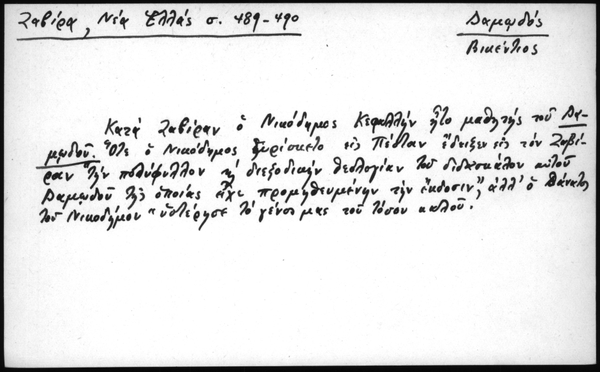 Ζαβίρα, Νέα Ἑλλάς σ. 489-490
Δαμῳδός
Βικέντιος
Κατά Ζαβίραν ὁ Νικόδημος Κεφαλλήν ἦτο μαθητής τοῦ Δα-
μῳδοῦ. Ὅτε ὁ Νικόδημος εὑρίσκετο εἰς Πέσταν ἔδειξεν εἰς τόν Ζαβί-
ραν "τήν πολύφυλλον καί διεξοδικήν θεολογίαν τοῦ διδασκάλου αὐτοῦ
Δαμῳδοῦ τῆς ὁποίας εἶχε προμηθευμένην τήν ἔκδοσιν", ἀλλ' ὁ θάνατος
τοῦ Νικοδήμου "ὑστέρησε τό γένος μας τοῦ τόσου καλοῦ".